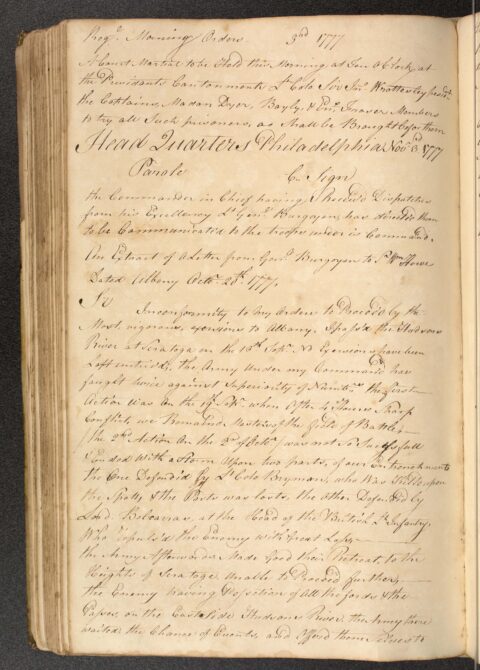 Regt. Morning Orders 3rd 1777
A Court Martial to be Held this Morning at Ten O Clock, at
the Presidants Cantonments Lt. Colo. Sir Jno. Wrottesley presidt.
the Captains, Madan Dyer, Bayly, & Ensn. Members
to try all Such prisoners, as Shall be Brought before them
Head Quarters Philadelphia Nov. 3d 1777
Parole Cn. Sign
the Commander in Chief having Receiv'd Dispatches
from his Excellency Lt. Genl. Burgoyne, has directed them
to be Communicated to the troops under is Command.
An Extract of a Letter from Genl. Burgoyne to Sr. Wm. Howe
Dated Albany Octr. 20th 1777.
Sir
Inconformity to my Orders to Proceed by the
Most, vigorous, exersions to Albany. I pass'd the Hudsons
River at Saratoga on the 13th Septr. No Exersions have been
Left untried, the Army Under my Command has
faught twice against Superiority of Numbrs. the first
Action Was on the 19th Sepr. when After 4 Hours Sharp
Conflict, we Remaind Masters of the Field of Battle
the 2nd Action On the of Octr. was not So Successfull
Ended With a Storm Upon two parts, of our Entrenchments
the One Defended by Lt. Colo. Breyman, who Was Killed upon
the Spott, & the Parts was Lost, the other Defended by
Lord Belcarras, at the Head of the British Lt. Infantry,
Who Repuls'd the Enemy With Great Loss,
the Army Afterwards Made Good their Retreat, to the
Heights of Saratoga Unable to Proceed further,
the Enemy having Possession of All the fords & the
Passes, on the East side Hudsons River. the Army there
waited the Chance of Events, and Offerd them Selves